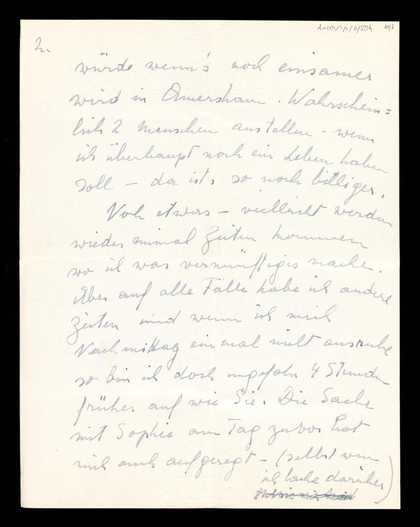 2.
würde wenn's noch einsamer
wird in Amersham. Wahrschein=
lich 2 Menschen anstellen - wenn
ich überhaupt noch ein Leben haben
soll - da ist's so noch billiger.
Noch etwas - vielleicht werden
wieder einmal Zeiten kommen
wo ich was vernünftiges mache.
Aber auf alle Fälle habe ich andere
Zeiten und wenn ich mich
Nachmittag einmal nicht ausruhe
so bin ich doch ungefähr 4 Stunden
früher auf wie Sie. Die Sache
mit Sophie am Tag zuvor hat
mich auch aufgeregt - (selbst wenn
ich lache darüber)